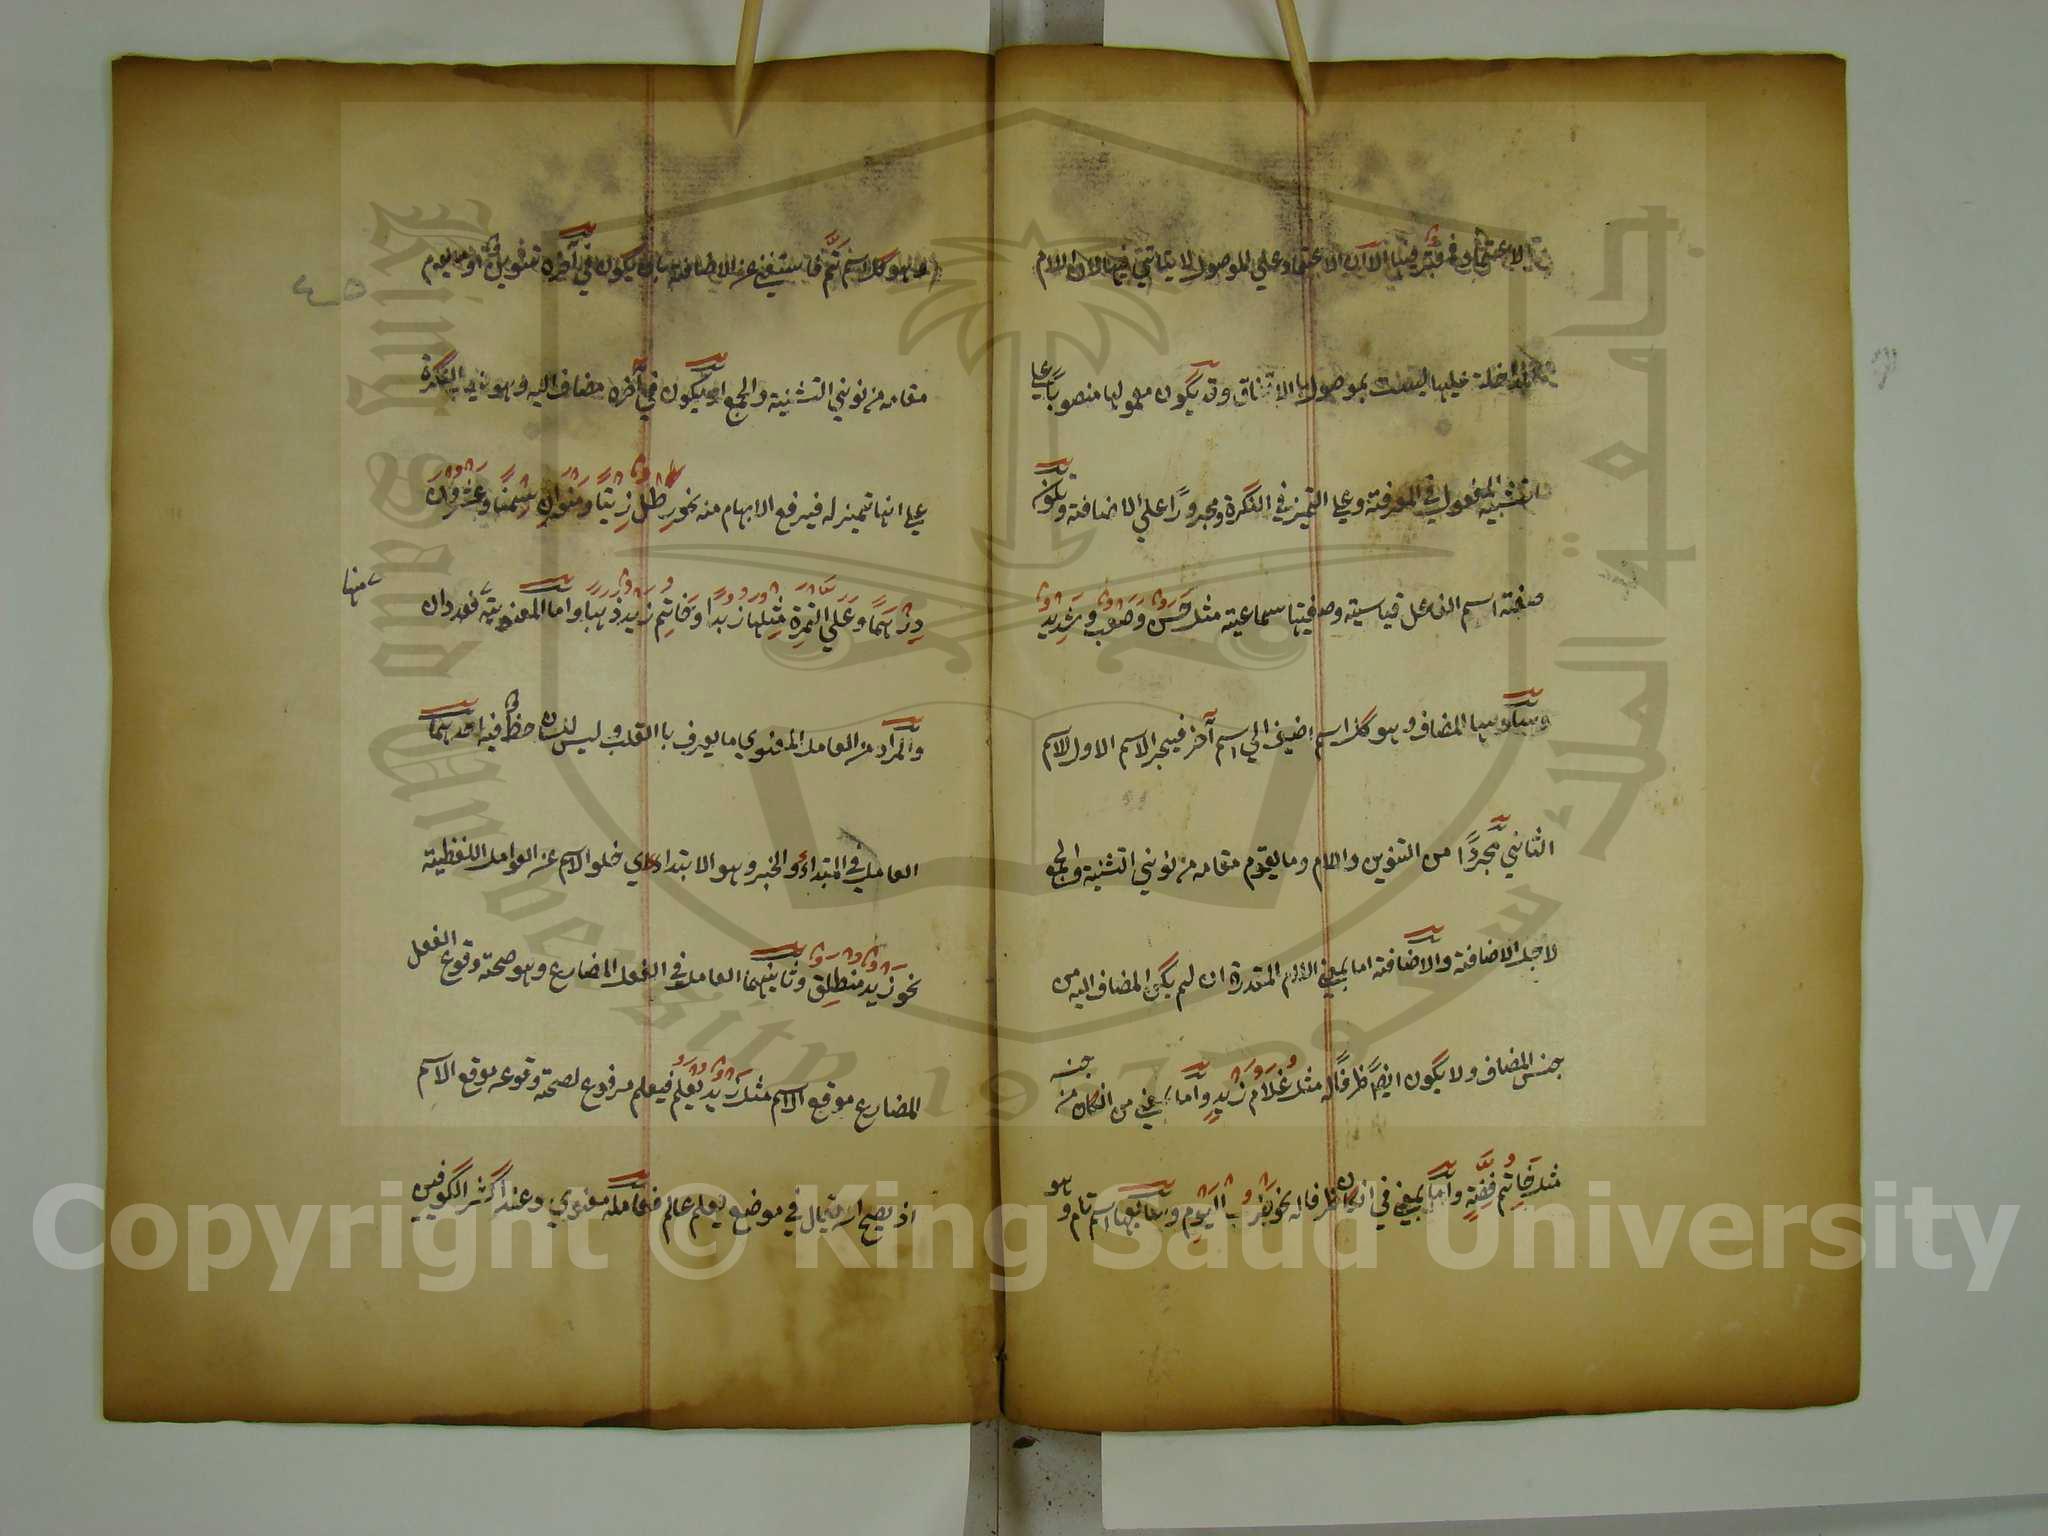 الاعتماد فيها الا ان الاعتماد علي الموصول لا يتاتي فيها لان اللام
الداخلة عليها ليست بموصول بالاتفاق وقد يكون معمولها منصوبا علي
التشبيه بالمفعول في المعرفة وعلي التميز في النكرة ومجرورًا علي الاضافة وتكون
صيغة اسم الفاعل قياسية وصيغتها سماعية مثل حَسَن وصَعْب وشَدِيد
وسادسها المضاف وهو كل اسم اضيف الي اسم آخر فيجر الاسم الاول الاسم
الثاني مجردًا من التنوين واللام وما يقوم مقامه من نوني التثنية والجمع
لاجل الاضافة والاضافة اما بمعني اللام المقدرة ان لم يكن المضاف اليه من
جنس المضاف ولا يكون ايضًا ظرفًا له مثل غُلَامُ زَيْدٍ واما بمعني من ان كان من جنسه
مثل خَاتَمُ فِضَّةٍ واما بمعني في ان كان ظرفا له نحو ضَرْبُ الْيَوْمِ وسابعها اسم تام وهو
وهو كل اسم تم فاستغني عن الاضافة بان يكون في آخره تنوين او ما يقوم
مقامه من نوني التثنية والجمع او يكون في آخره مضاف اليه وهو ينصب النكرة
علي انها تميز له فيرفع الابهام منه نحو رِطْلٌ زَيْتًا ومَنَوَانِ سَمْنًا وعِشْرُونَ
دِرْهَمًا وعَلَي التَّمْرَةِ مِثْلُهَا زُبْدًا وخَاتَمُ زَيْدٍ ذَهَبًا واما المعنوية فعددان
منها
والمراد من العامل المعنوي ما يعرف بالقلب وليس للسان حظ فيه احدهما
العامل في المبتداء والخبر وهو الابتداء اي خلو الاسم عن العوامل اللفظية
نحو زيد منطلق وثانيهما العامل في الفعل المضارع وهو صحة وقوع الفعل
المضارع موقع الاسم مثل زيد يعلم فيعلم مرفوع لصحة وقوعه موقع الاسم
اذ يصح ان يقال في موضع يعلم عالم فعامله معنوي وعند اكثر الكوفيين
Copyright © King Saud University
King Saud University
1957
جامعة الملك سعود